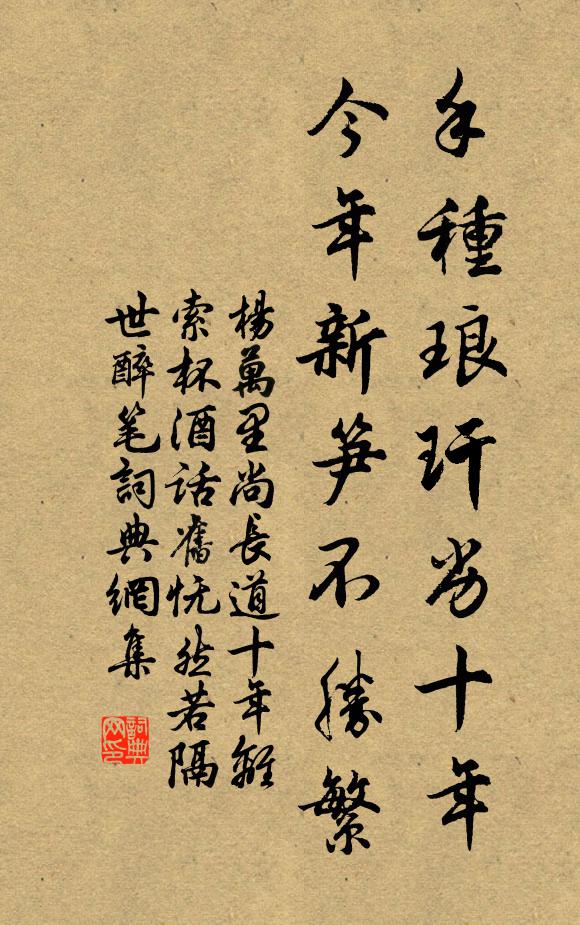 手種琅玕劣十年
今年新笋不勝繁
楊萬里尚長道十年離
索杯酒話舊怳然若隔
世醉筆詞典網集
詞典
网印